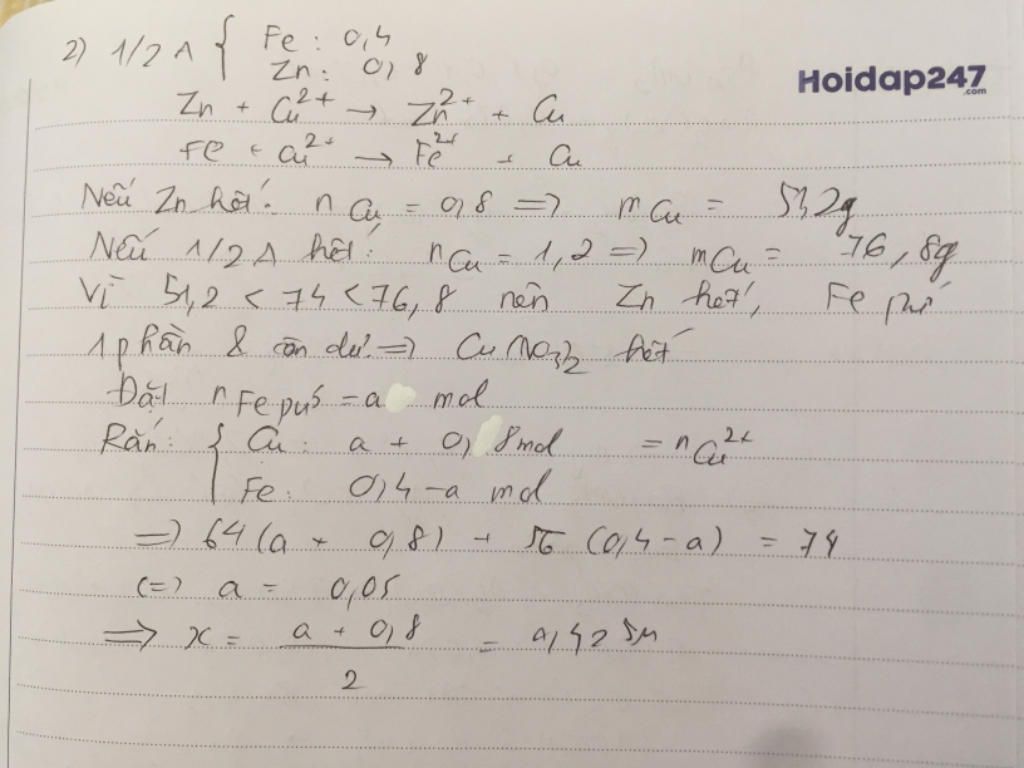 2) 1/2 A { Fe : 0,4
Zn : 0,8
Hoidap247
.com
Zn + Cu²⁺ → Zn²⁺ + Cu
Fe + Cu²⁺ → Fe²⁺ + Cu
Nếu Zn hết : n Cu = 0,8 => m Cu = 51,2g
Nếu 1/2 A hết : n Cu = 1,2 => m Cu = 76,8g
Vì 51,2 < 74 < 76,8 nên Zn hết, Fe pứ
1 phần & còn dư => Cu(NO₃)₂ hết
Đặt n Fe pứ = a mol
Rắn : { Cu : a + 0,8 mol = n Cu²⁺
Fe : 0,4 - a mol
=> 64 (a + 0,8) + 56 (0,4 - a) = 74
(=) a = 0,05
=> x = (a + 0,8)/2 = 0,425M